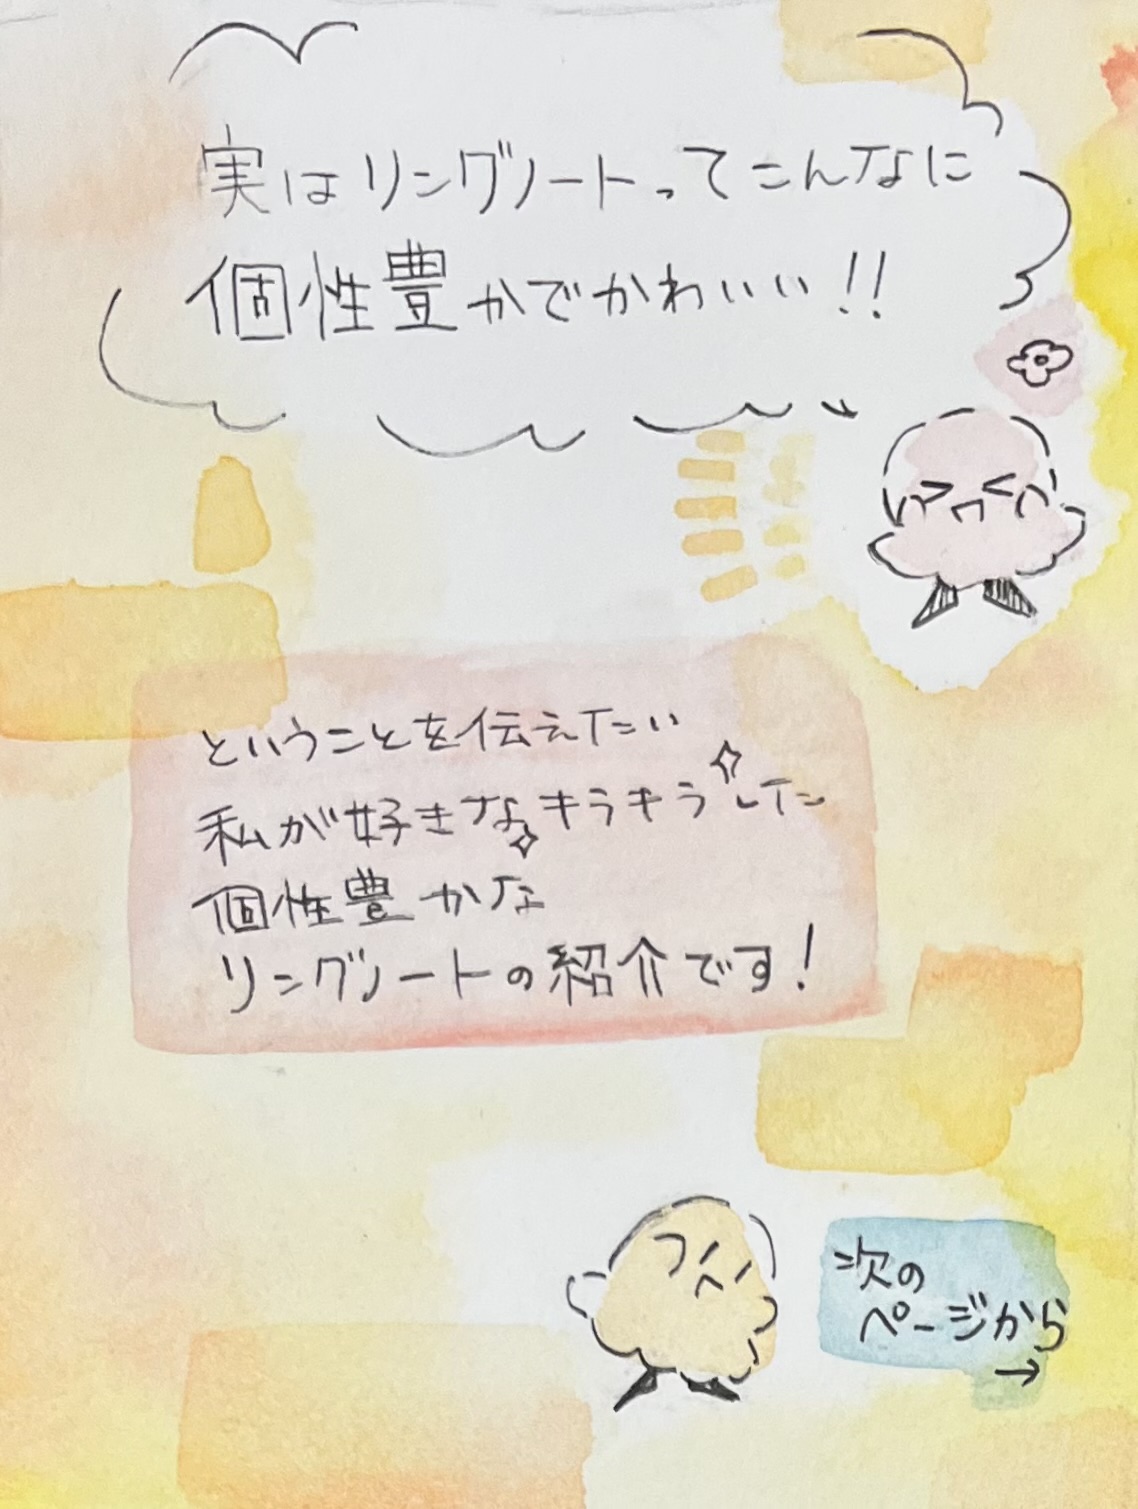 実はリングノートってこんなに
個性豊かでかわいい!!
ということを伝えたい
私が好きなキラキラした
個性豊かな
リングノートの紹介です!
次の
ページから
→